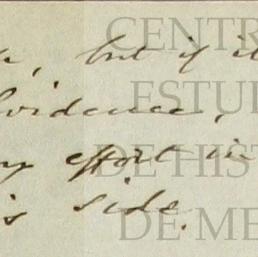 but if it
evidence,
effort in
side.
CENTR
ESTU
DE HIST
DE ME